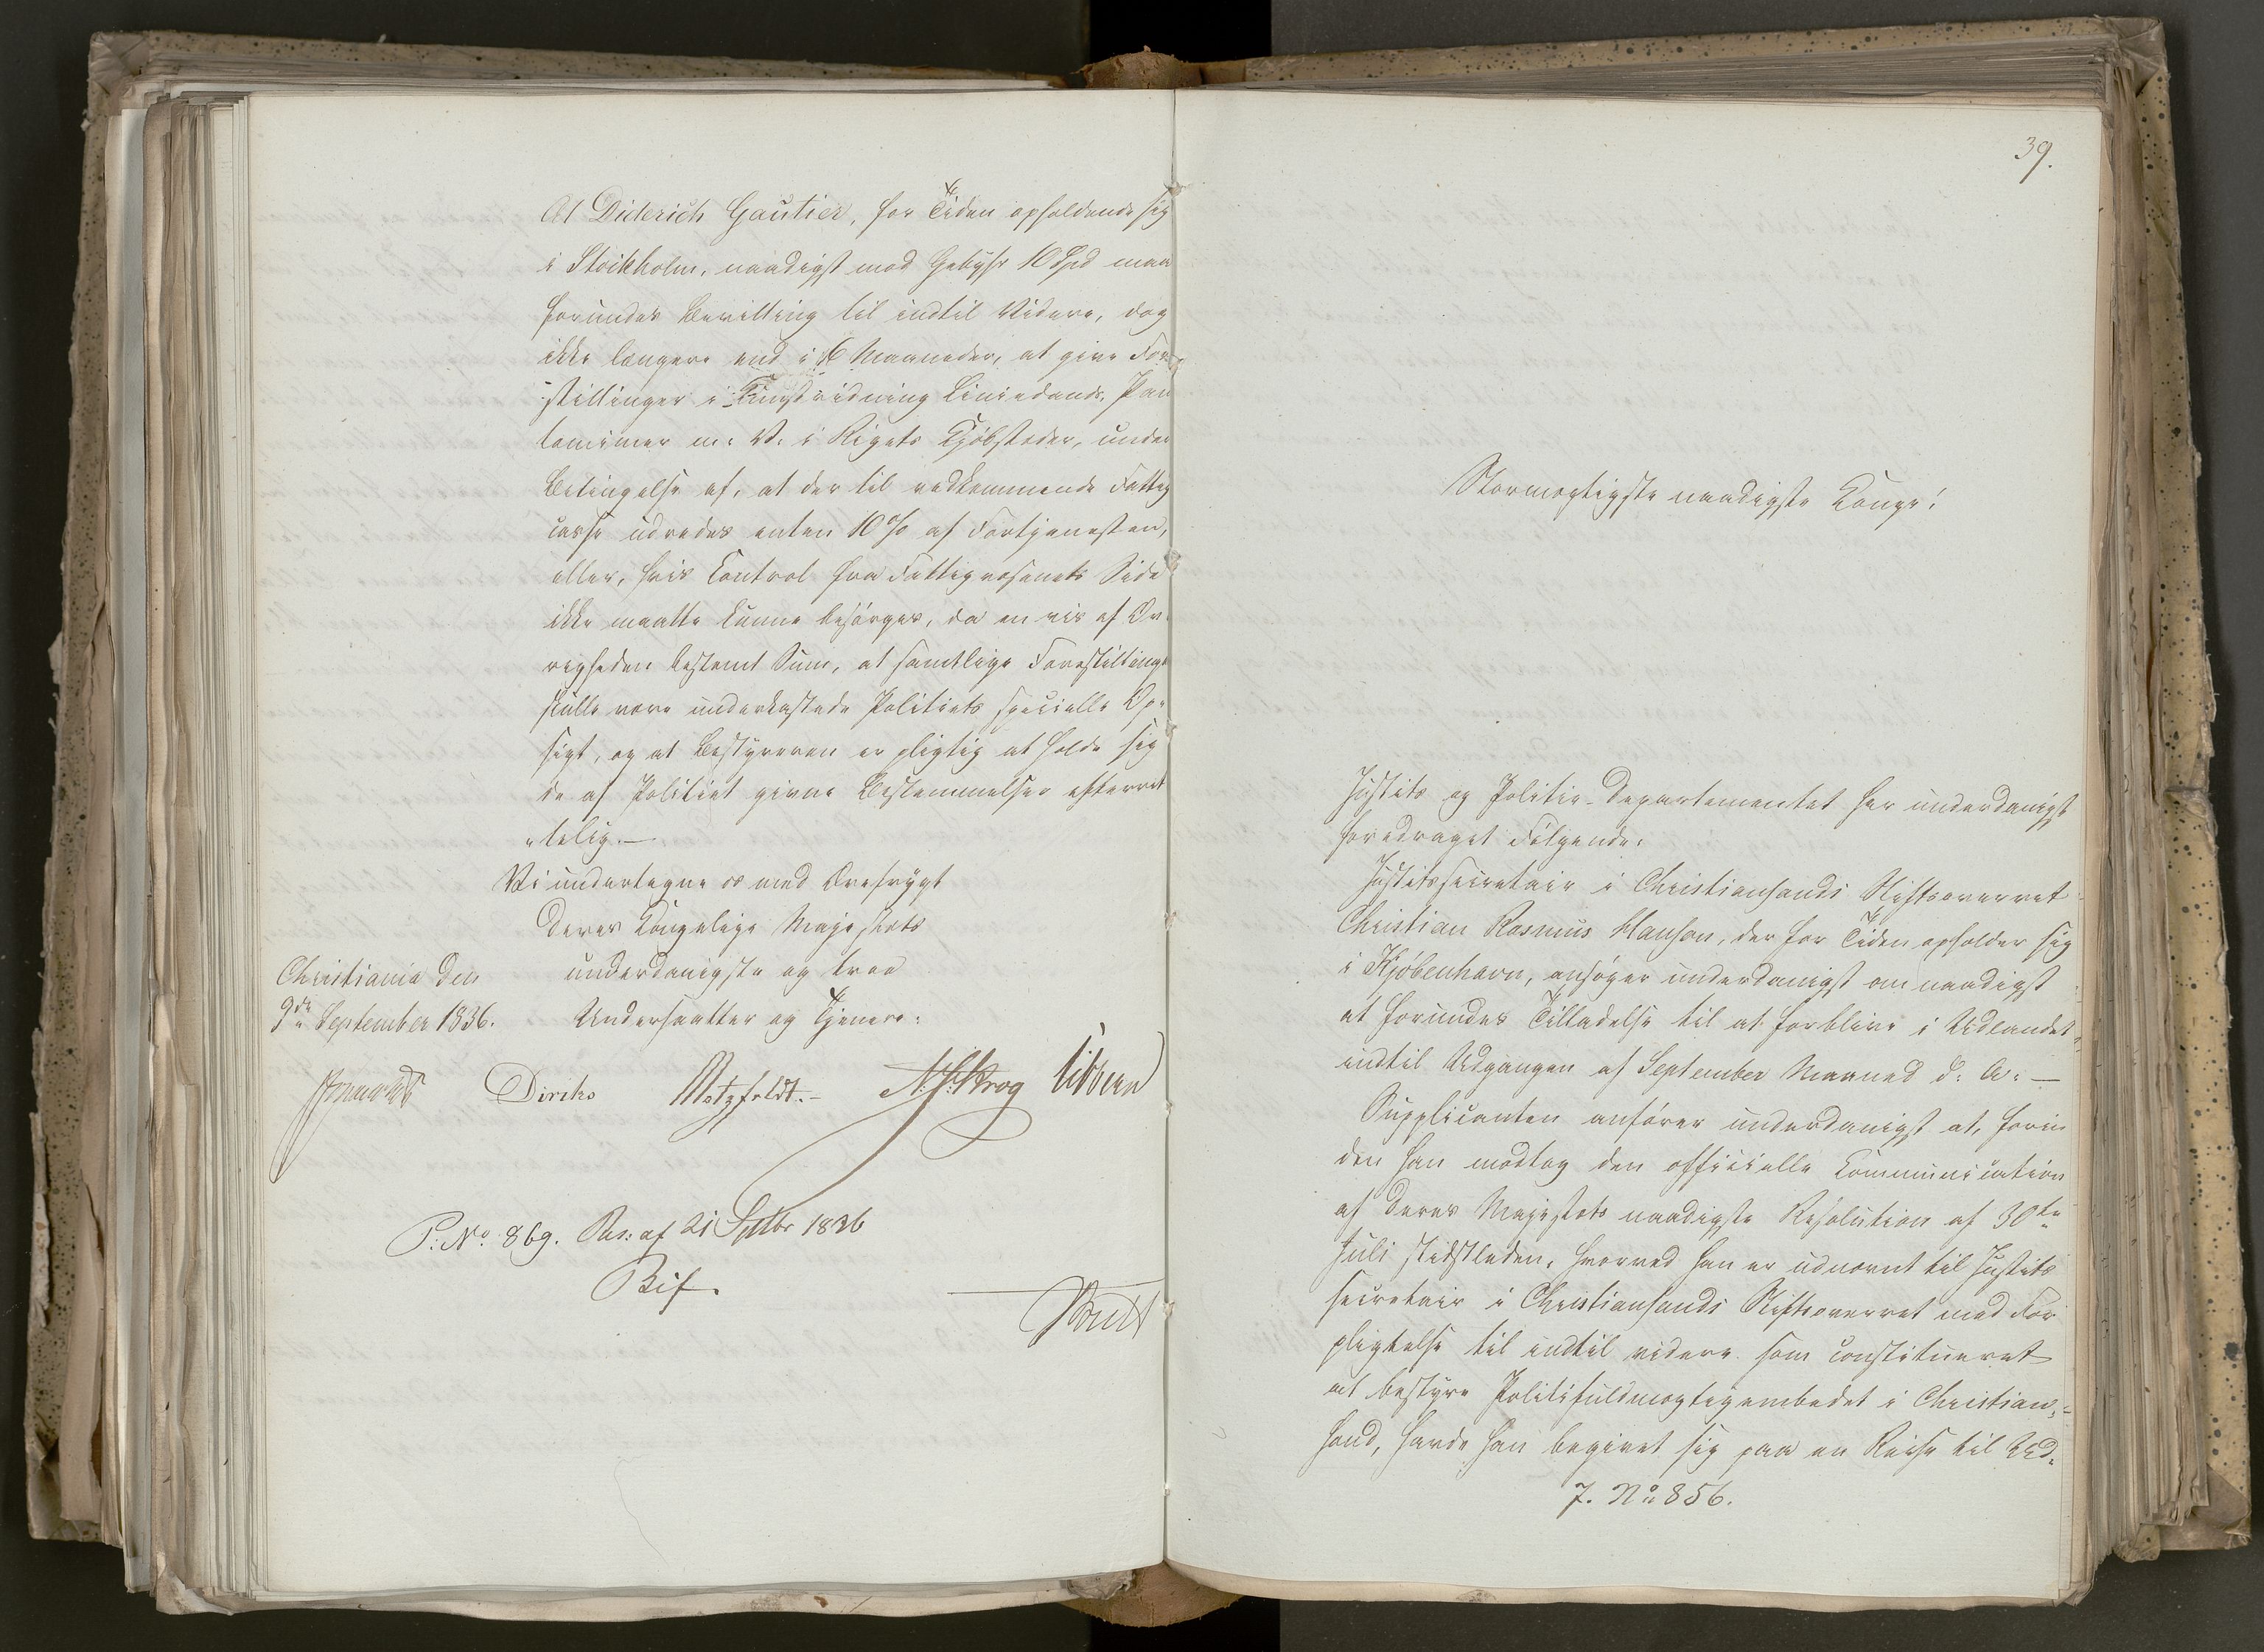 At Diderich Gautier, for Tiden opholdende sig
i Stockholm, naadigst mod Gebyhr 10 Spd maa
forundes Bevilling til indtil Videre, dog
ikke længere end i 6 Maaneder, at give Fore
stillinger i Kunstridning Liniedands, Pan
tomimer m: V. i Rigets Kjøbstæder, under
Betingelse af, at der til vedkommende Fattig
casse udredes enten 10 % af Fortjenesten,
eller, hvis Control fra Fattigvæsenets Side
ikke maatte kunne besørges, da en vis af Øv
righeden bestemt Sum, at samtlige Forestillinger
skulle være underkastede Politiets specielle Op-
sigt, og at Bestyreren er pligtig at holde sig
de af Politiet givne Bestemmelser efterret
telig.—
Vi undertegne os med Ærefrygt
Deres Kongelige Majestæts
underdanigste og troe
Undersaatter og Tjenere:
Christiania den
9de September 1836.
Diriks Motzfeldt.- N. S. Krog Vibe
P: No 869. Res: af 21 Septbr 1836
Bif.
39.
Stormægtigste naadigste Konge!
Justits og Politie-Departementet har underdanigst
foredraget Følgende:
Justitssecretair i Christiansands Stiftsoverret
Christian Rasmus Hanson, der for Tiden opholder sig
i Kjøbenhavn, ansøger underdanigst om naadigst
at forundes Tilladelse til at forblive i Udlandet
indtil Udgangen af September Maaned d: A: —
Supplicanten anfører underdanigst at, forin
den han modtog den officielle Communication
af Deres Majestæts naadigste Resolution af 30te
Juli sidstleden, hvorved han er udnævnt til Justits
secretair i Christiansands Stiftsoverret med For
pligtelse til indtil videre som constitueret
at bestyre Politifuldmægtigembedet i Christian-
sand, havde han begivet sig paa en Reise til Ud-
7. No 856.